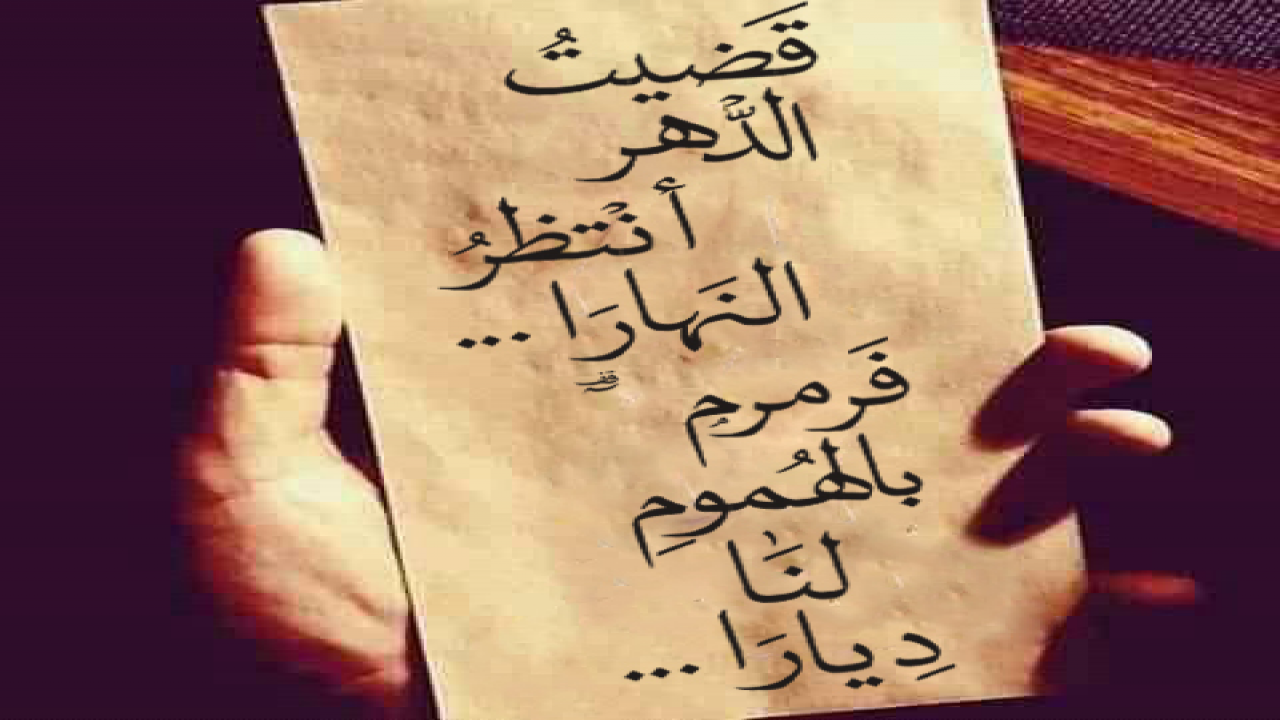 قَضيتُ
الدَّهر
أنْتظرُ
النَهارَا ...
فَرمرمِ
بالهُمومِ
لنَا
دِيارَا ...